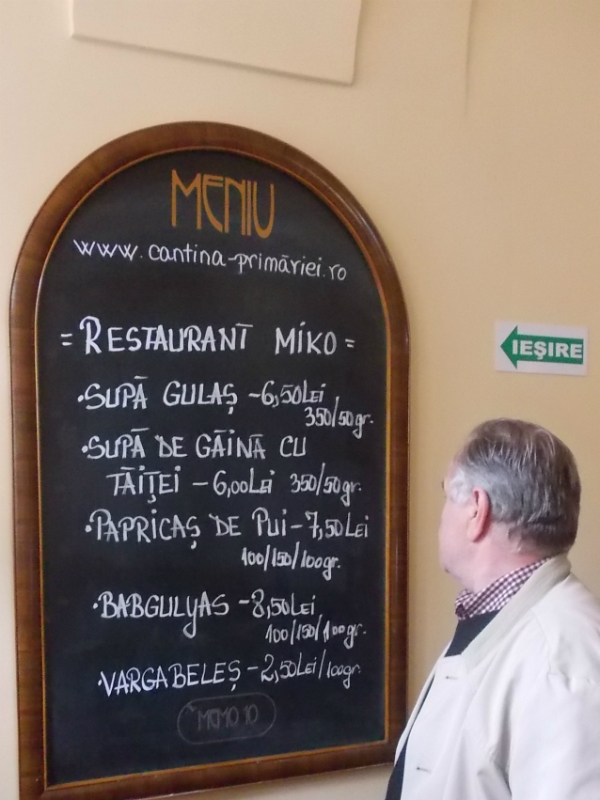 MENIU
www.cantina-primăriei.ro
= RESTAURANT MIKO =
• SUPĂ GULAȘ - 6,50 Lei
350/50 gr.
• SUPĂ DE GĂINĂ CU
TĂIȚEI - 6,00 Lei 350/50 gr.
• PAPRICAȘ DE PUI - 7,50 LEI
100/150/100 gr.
• BABGULYAS - 8,50 Lei
100/150/100 gr.
• VARGABELEȘ - 2,50 Lei/100 gr.
MEMO 10
IEȘIRE